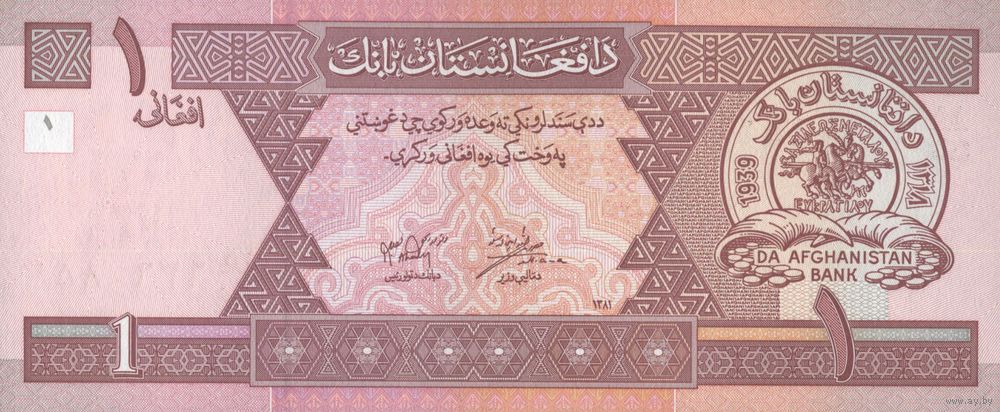 ۱
د افغانستان بانک
افغانۍ
۱
ددې سند لرونکي ته وعده ورکوي چې د غوښتنې
په وخت کې يوه افغانۍ ورکړي.
د افغانستان بانک
۱۳۱۸
1939
ΒΑΣΙΛΕΩΣ ΜΕΓΑΛΟΥ
ΕΥΚΡΑΤΙΔΟΥ
DA AFGHANISTAN
BANK
د ماليې وزير
۱۳۸۱
1
۱
www.ay.by